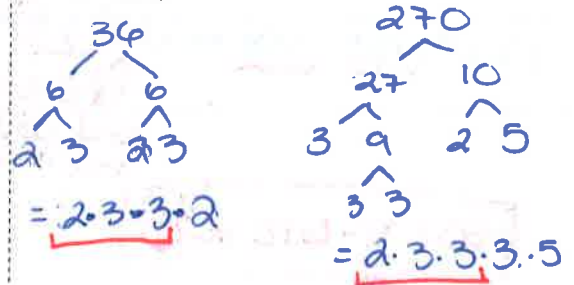 36
6 6
2 3 2 3
= 2·3·3·2
270
27 10
3 9 2 5
3 3
= 2·3·3·3·5